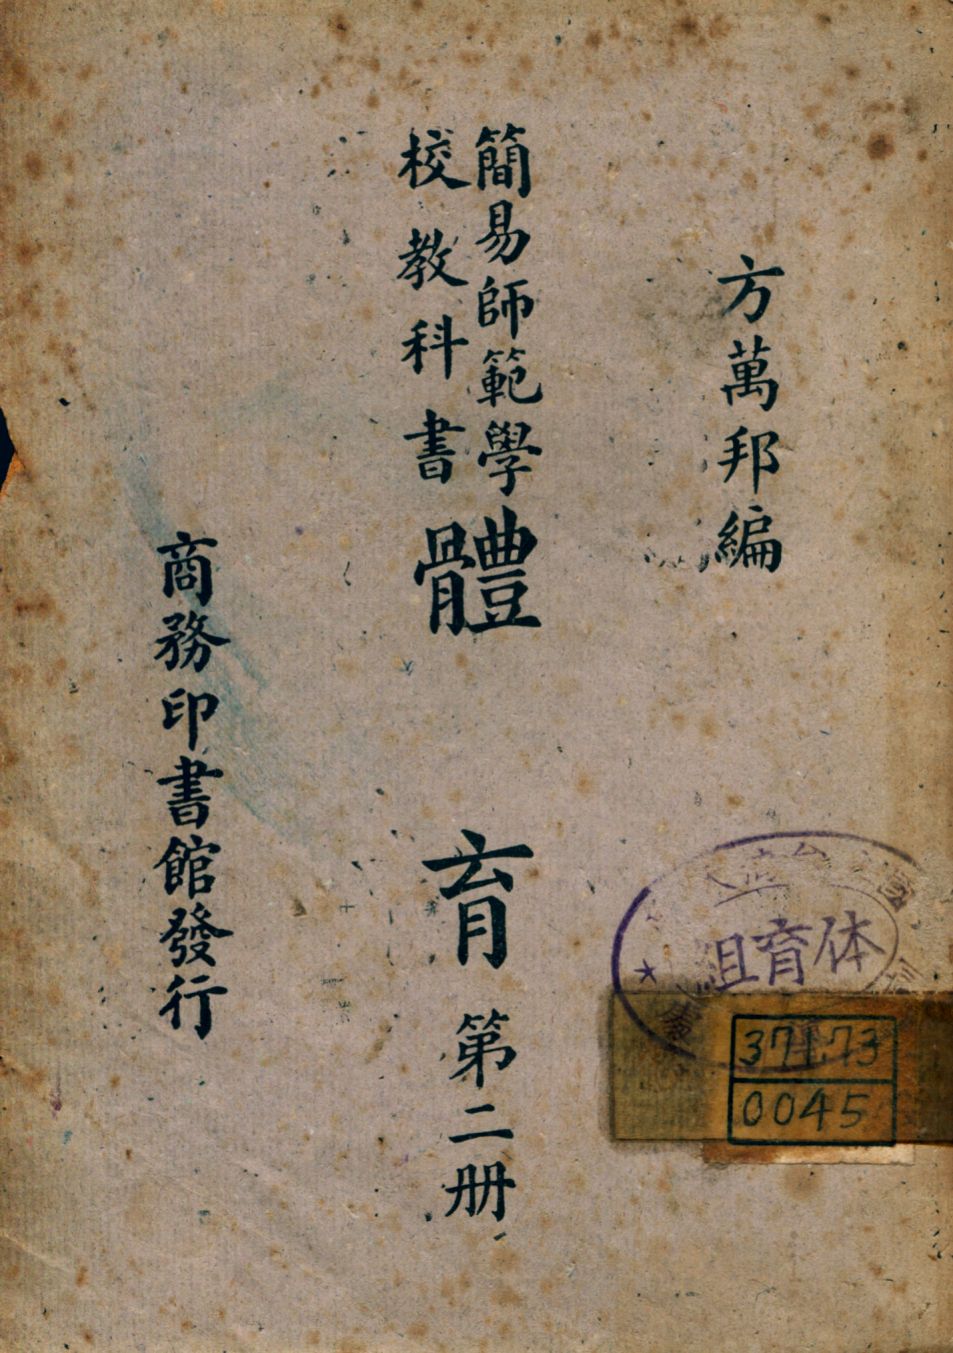 方萬邦編
簡易師範學
校教科書
體育第二册
商務印書館發行
体育組
371.73
0045